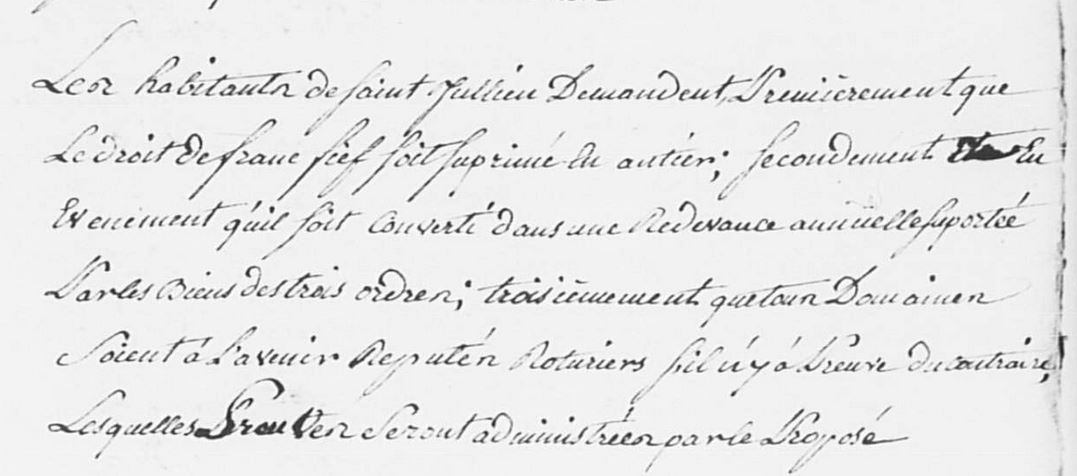 Les habitants de saint Jullien Demandent, Premièrement que
Le droit de franc fief soit suprimé En antier; secondement En
Evenement qu'il soit Converti dans une Redevance annuelle suportée
Par les Biens des trois ordres; troisièmement que tous Domaines
Soient à L'avenir Reputés Roturiers s'il n'y à Preuve du contraire,
Lesquelles Preuves Seront administrées par le Préposé